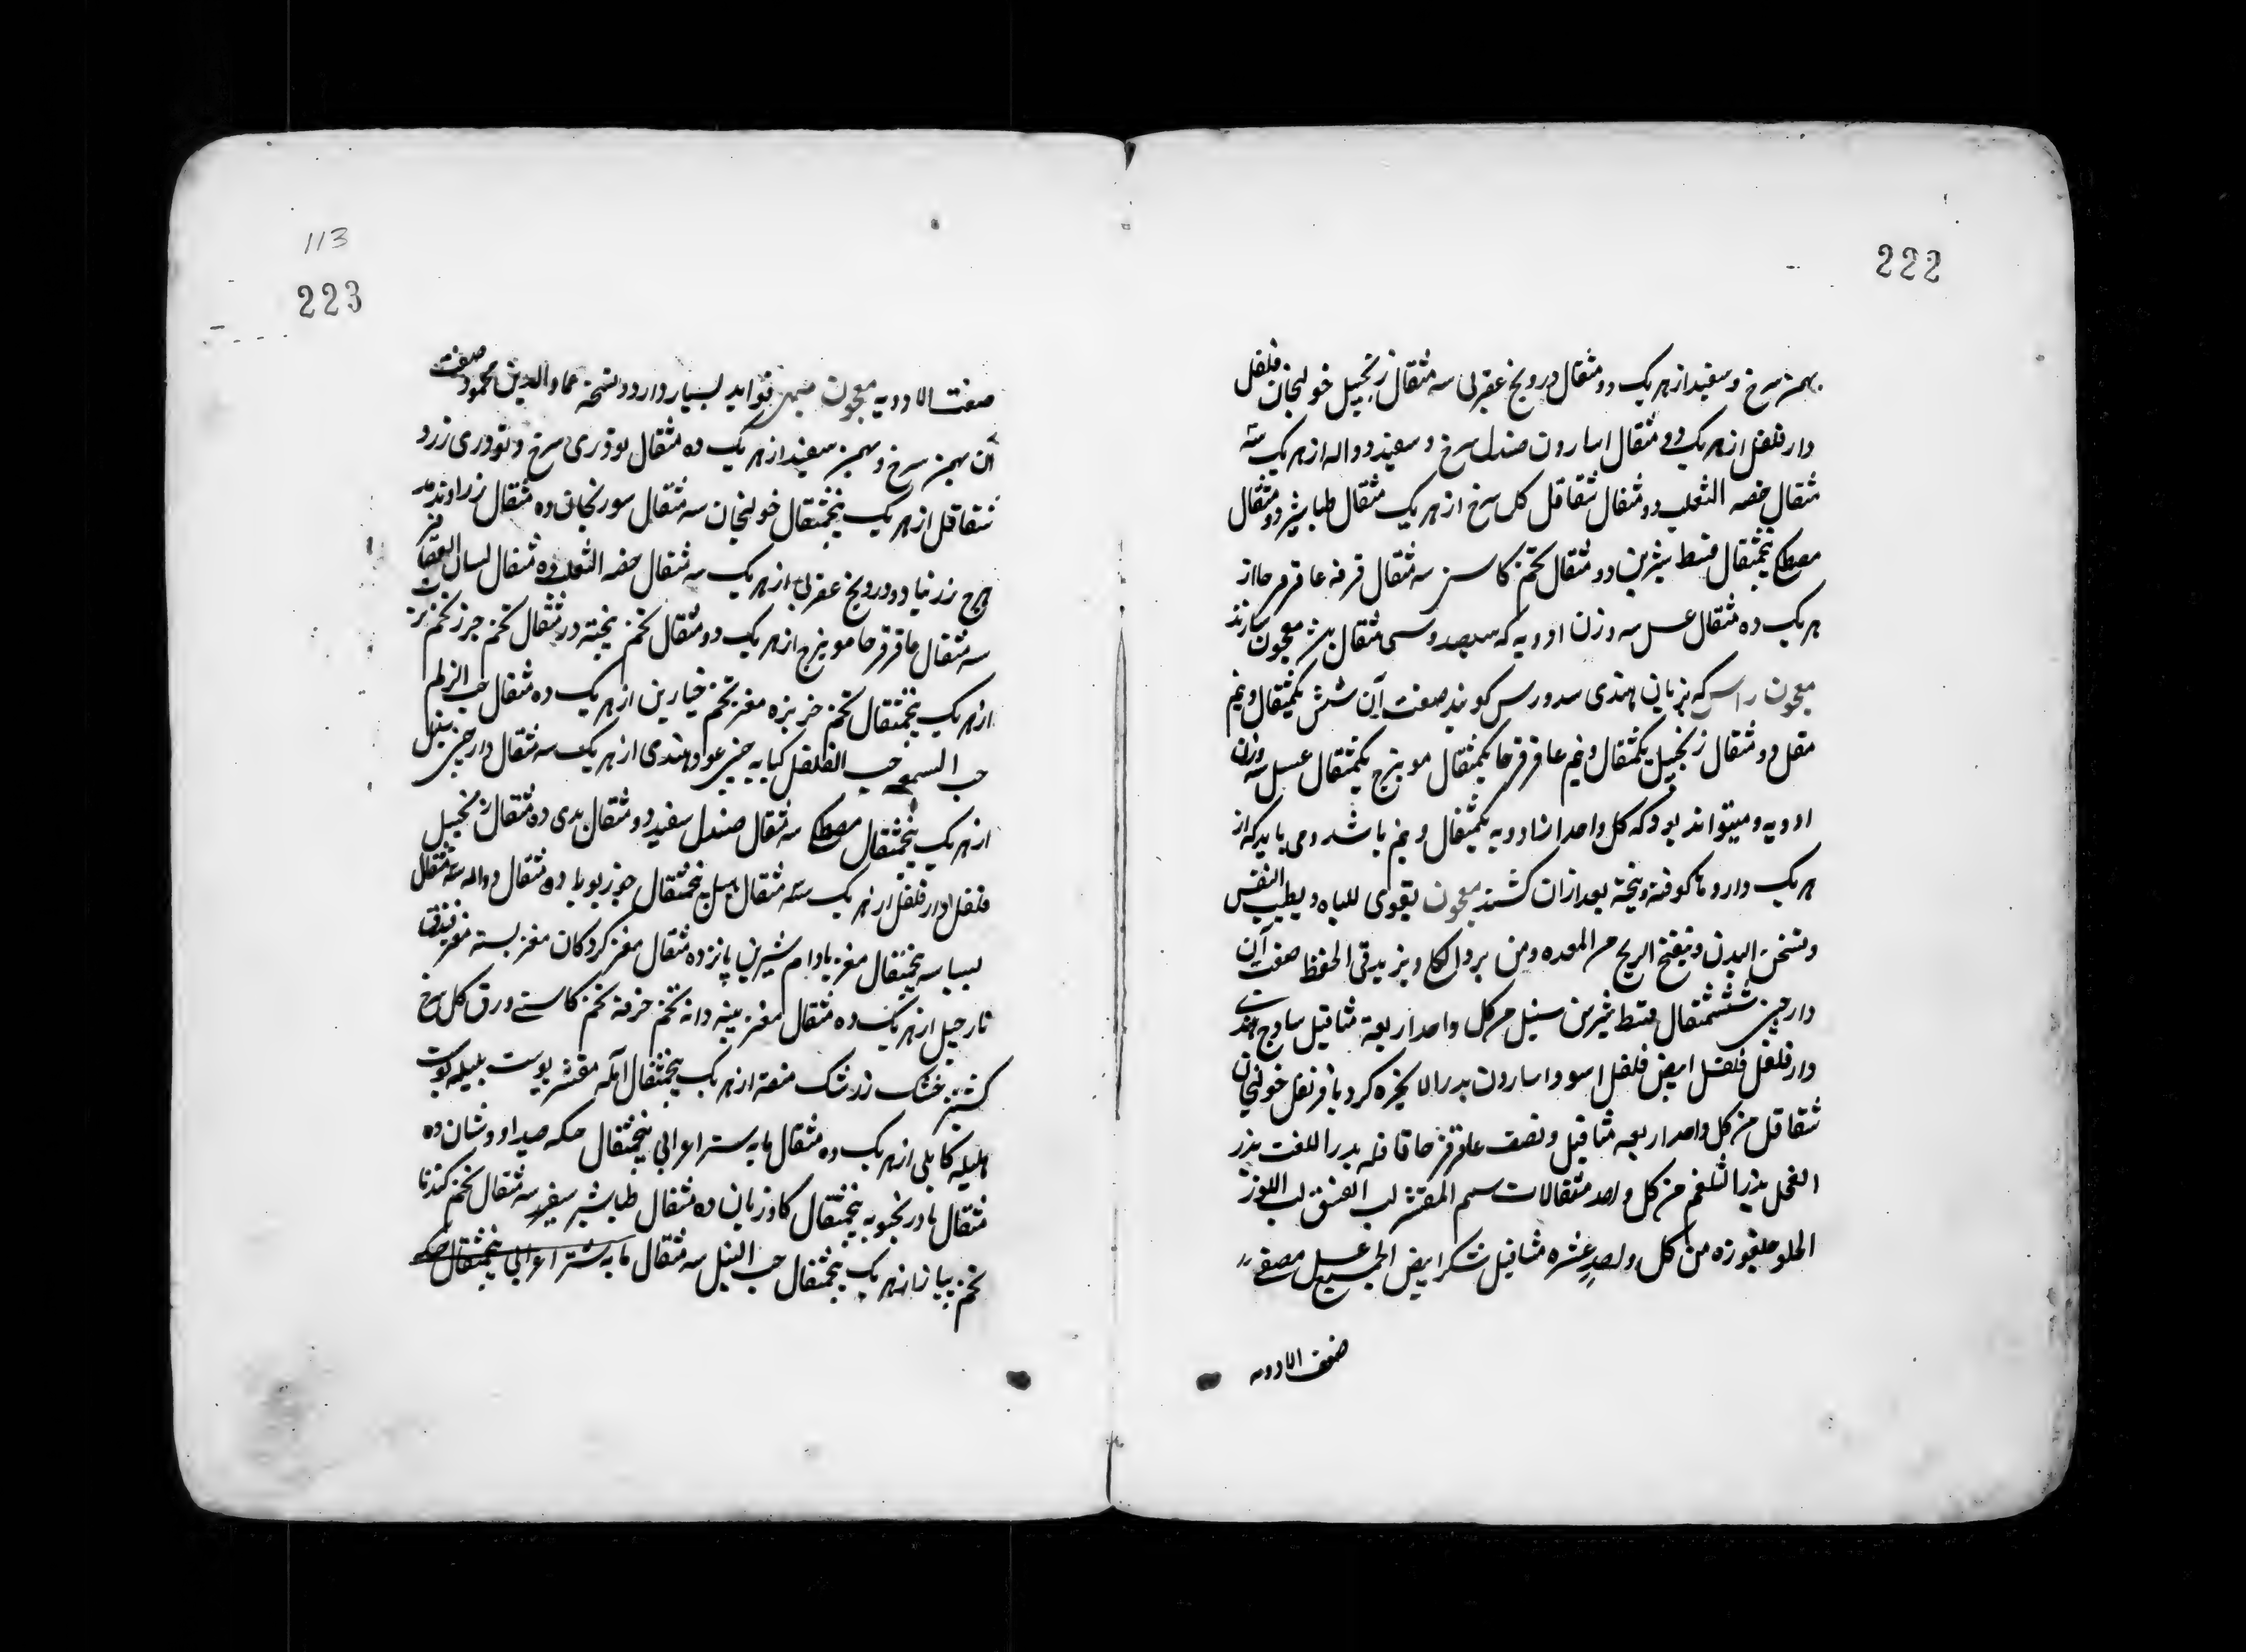 222
بهمن سرخ و سفید از هر یک دو مثقال درونج عقربی سه مثقال زنجبیل خولنجان فلفل
دار فلفل از هر یک دو مثقال اسارون صندل سرخ و سفید دواله از هر یک سه
مثقال خصیه الثعلب دو مثقال شقاقل کل سرخ از هر یک مثقال طباشیر دو مثقال
مصطکی پنجمثقال قسط شیرین دو مثقال تخم کاسنی سه مثقال قرفه عاقرقرحا از
هر یک ده مثقال عسل سه وزن ادویه که سیصد و سی مثقال باشد معجون سازند
معجون راس که بزبان هندی سدورس کویند صفت آن شش یکمثقال و نیم
مقل دو مثقال زنجبیل یکمثقال و نیم عاقرقرحا یکمثقال مویزج یکمثقال عسل سه وزن
ادویه و میتواند بود که کل واحد از ادویه یکمثقال و نیم باشد و می باید که از
هر یک دارو ها کوفته و بیخته بعد از ان کشند معجون یقوی للباه و یطیب النفس
و تسخن البدن و تنفتح الریح من المعده و من برد الکلا و یزید فی الحفظ صفت آن
دارچینی ششمثقال قسط شیرین سنبل من کل واحد اربعة مثاقیل ساذج هندی
دار فلفل فلفل ابیض فلفل اسود اسارون بذر الانجره کردیا قرنفل خولنجان
شقاقل من کل واحد اربعه مثاقیل و نصف عاقرقرحا قاقله بذر اللفت بذر
الفجل بذر الشلغم من کل واحد مثقالات سمسم المقشر لب الفستق لب اللوز
الحلو جلغوزه من کل واحد عشره مثاقیل شکر ابیض الجمیع عسل مصفی
صفت الادویه
113
223
صفت الادویه معجون فواید بسیار دارد و نسخه عماد الدین محمود صفت
آن بهمن سرخ و بهمن سفید از هر یک ده مثقال بوذری سرخ و تودری زرد
شقاقل از هر یک پنجمثقال خولنجان سه مثقال سورنجان ده مثقال زراوند مد
حرج زرنباد و درونج عقربی از هر یک سه مثقال خصیه الثعلب ده مثقال لسان العصافیر
سه مثقال عاقرقرحا مویزج از هر یک دو مثقال تخم مثقال تخم جزر تخم
از هر یک پنجمثقال تخم خربزه مغز تخم خیارین از هر یک ده مثقال حب الزلم
حب السمنه حب الفلفل کبابه چینی عود هندی از هر یک سه مثقال دارچینی سنبل
از هر یک پنجمثقال مصطکی سه مثقال صندل سفید دو مثقال ده مثقال زنجبیل
فلفل دار فلفل از هر یک سه مثقال هیل پنجمثقال جوز بویا ده مثقال دواله سه مثقال
بسباسه پنجمثقال مغز بادام شیرین پانزده مثقال مغز کردکان مغز پسته مغز فندق
نارجیل از هر یک ده مثقال مغز پنبه دانه تخم خرفه تخم کاسنی ورق کل سرخ
کشنیز خشک زرشک منقه از هر یک پنجمثقال آمله مقشر پوست بلیله پوست
هلیله کابلی از هر یک ده مثقال مایه شتر اعرابی پنجمثقال سکه صیدا و نشان ده
مثقال بادرنجبویه پنجمثقال کاوزبان ده مثقال طباشیر سفید سه مثقال تخم کندنا
تخم پیاز از هر یک پنجمثقال حب النیل سه مثقال مایه شتر اعرابی پنجمثقال